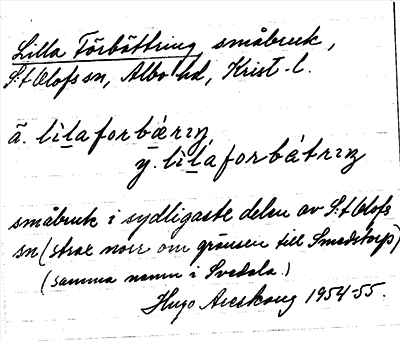 Lilla Förbättring, småbruk,
S:t Olofs sn, Albo hd, Krist-l.
ä. lìlaforbǽrıŋ
y. lìláforbátrıŋ
småbruk i sydligaste delen av S:t Olofs
sn (strax norr om gränsen till Smedstorp)
(samma namn i Svedala.)
Hugo Areskoug 1954-55.